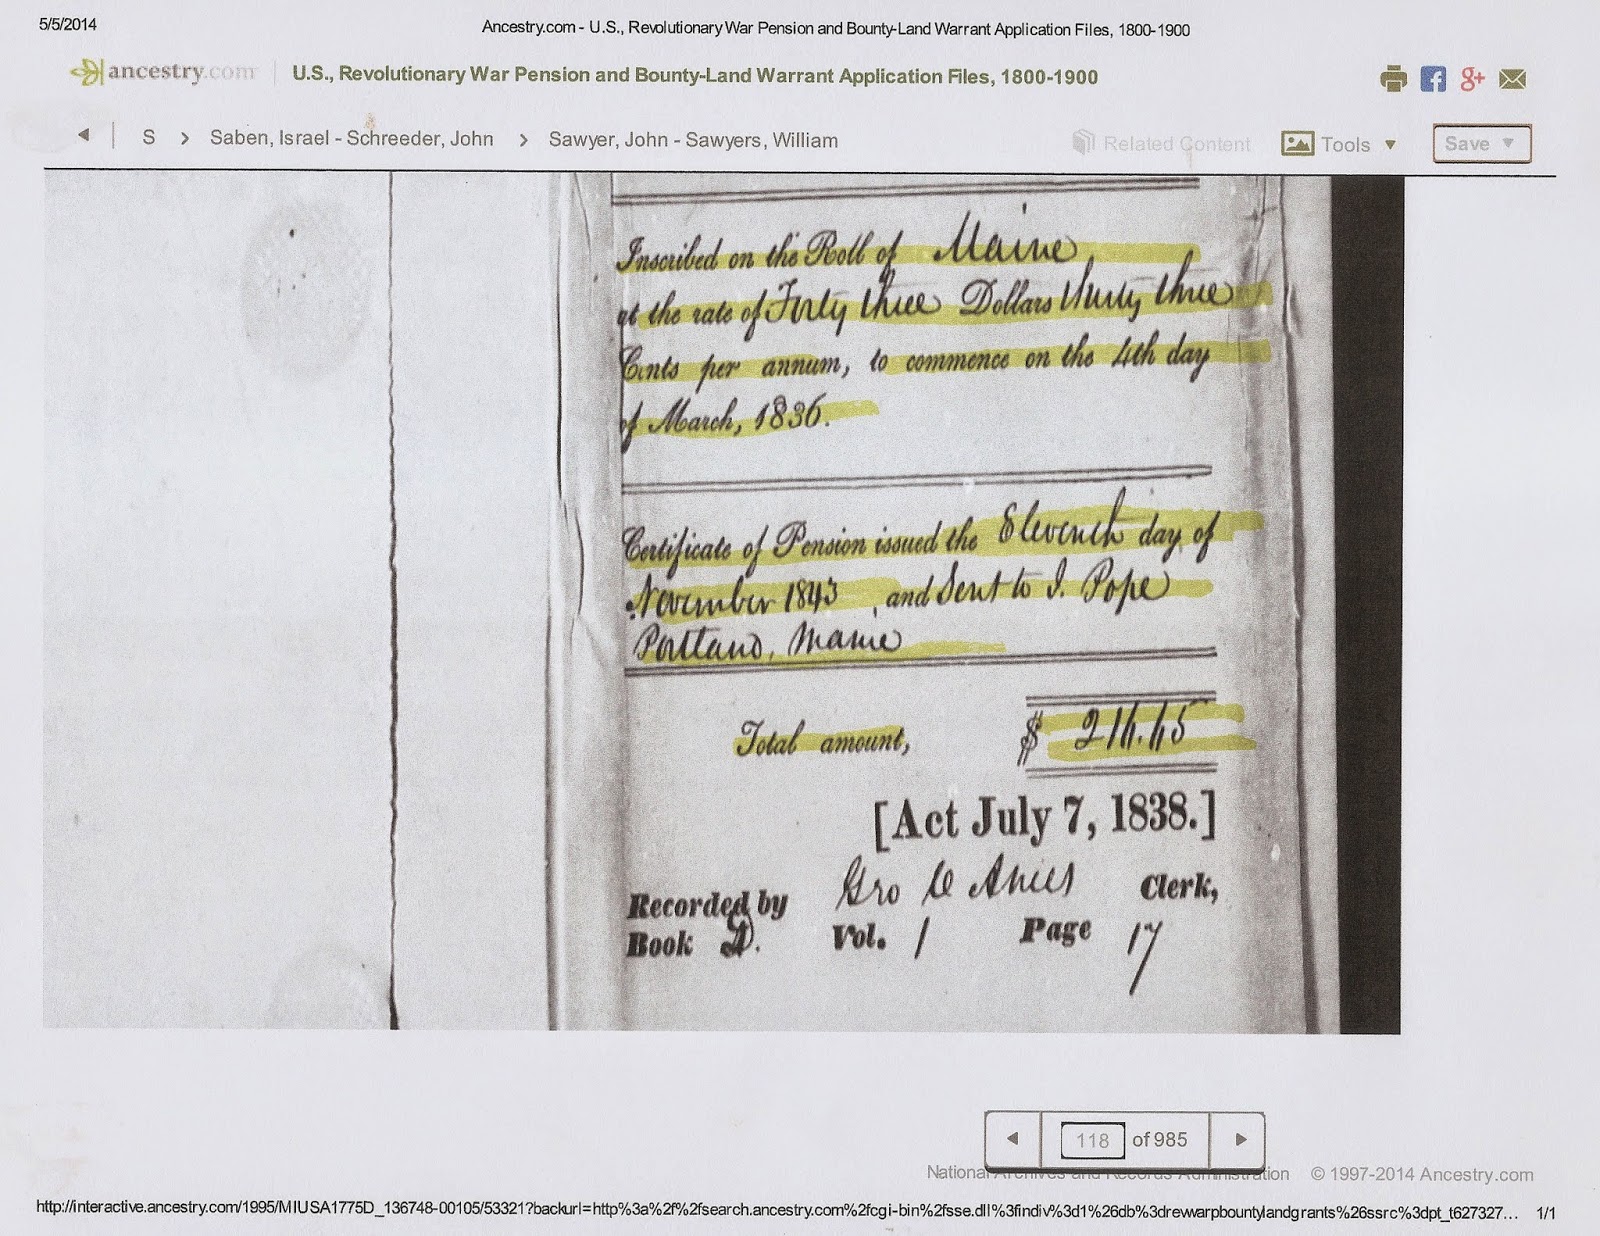 5/5/2014 Ancestry.com - U.S., Revolutionary War Pension and Bounty-Land Warrant Application Files, 1800-1900
ancestry.com U.S., Revolutionary War Pension and Bounty-Land Warrant Application Files, 1800-1900
S > Saben, Israel - Schreeder, John > Sawyer, John - Sawyers, William Related Content Tools Save
Inscribed on the Roll of Maine
at the rate of Forty three Dollars thirty three
Cents per annum, to commence on the 4th day
of March, 1836.
Certificate of Pension issued the Eleventh day of
November 1843 and Sent to I. Pope
Portland, Maine
Total amount, $ 216.65
[Act July 7, 1838.]
Recorded by Geo C Ames Clerk,
Book D. Vol. 1 Page 17
118 of 985
National Archives and Records Administration © 1997-2014 Ancestry.com
http://interactive.ancestry.com/1995/MIUSA1775D_136748-00105/53321?backurl=http%3a%2f%2fsearch.ancestry.com%2fcgi-bin%2fsse.dll%3findiv%3d1%26db%3drevwarpbountylandgrants%26ssrc%3dpt_t627327... 1/1